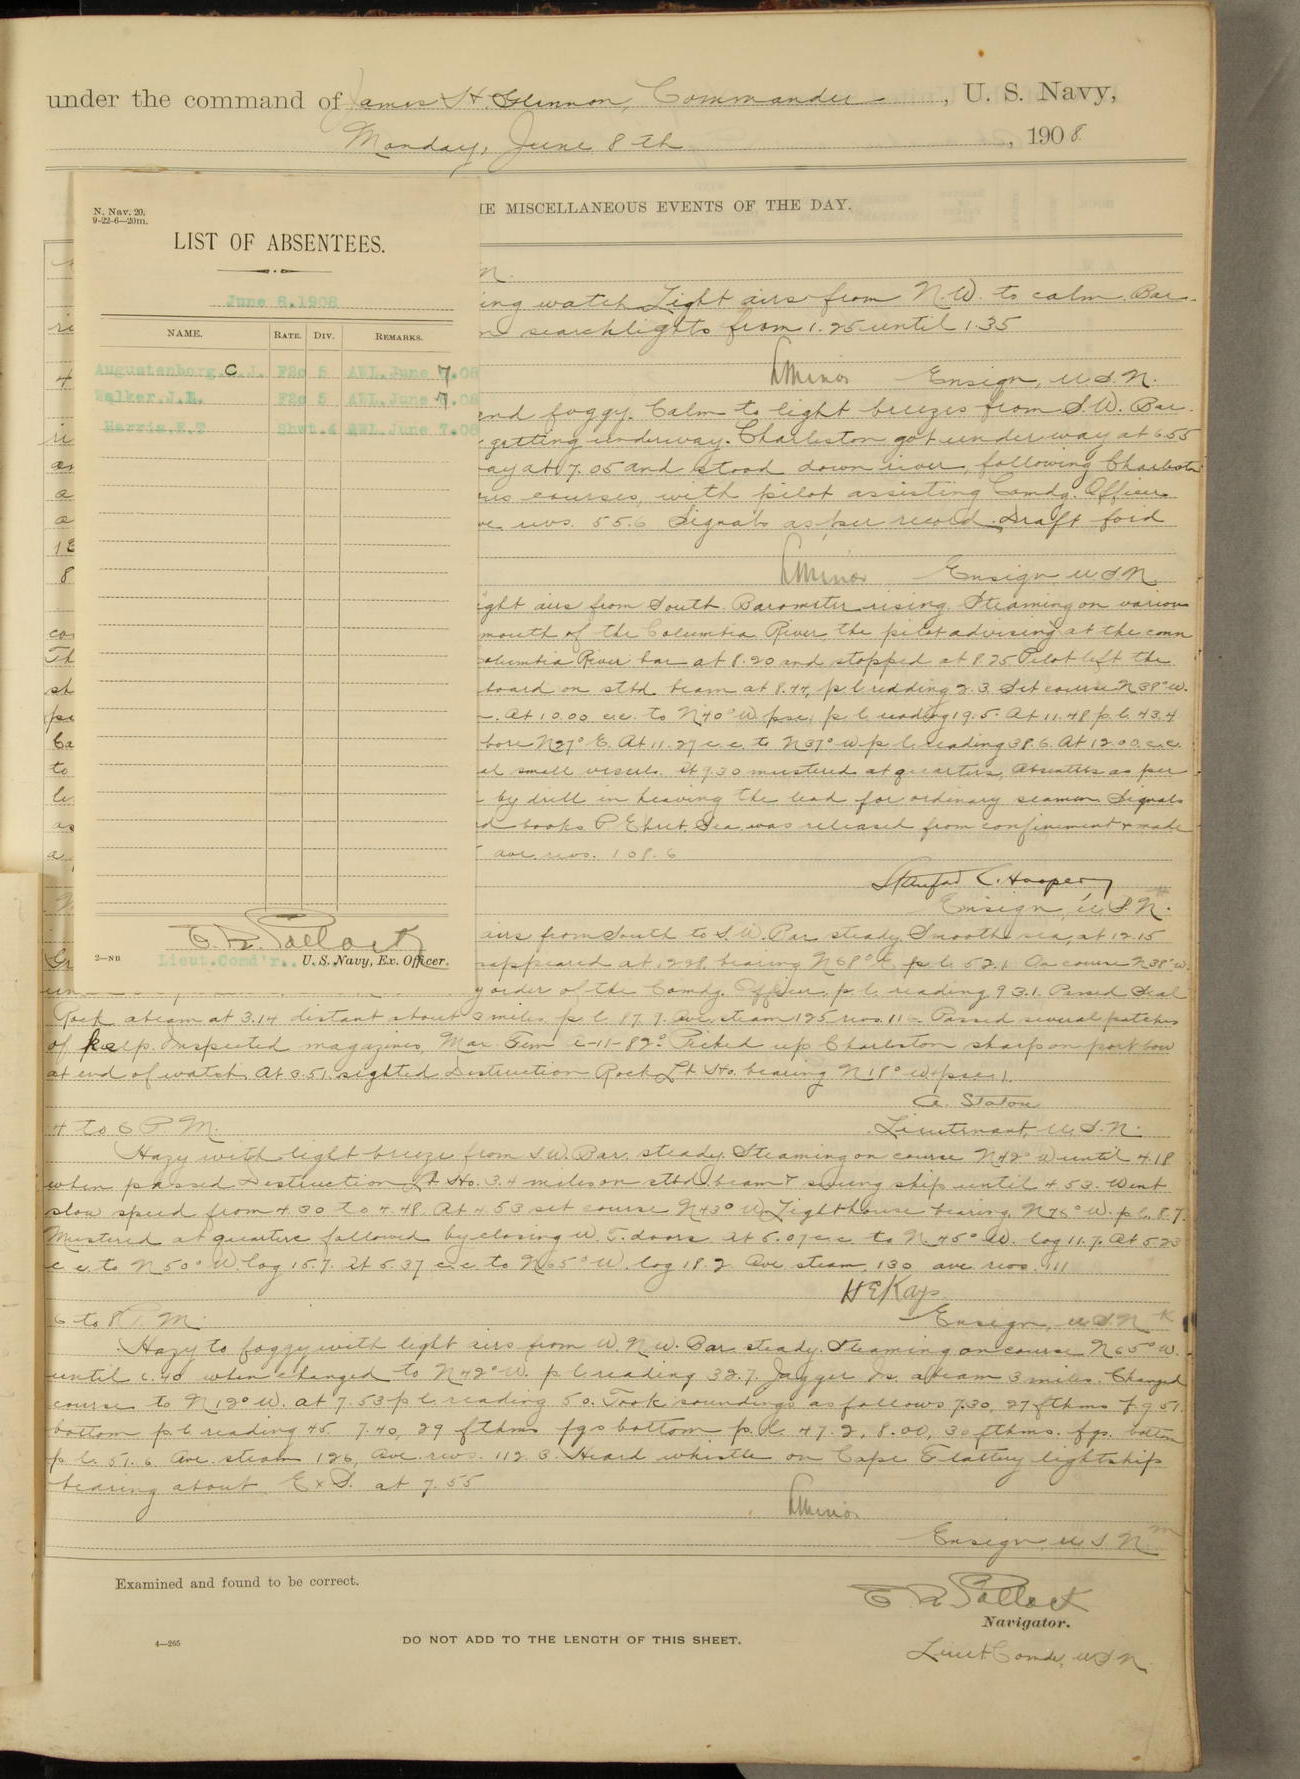 under the command of James H. Glennon, Commander, U. S. Navy,
Monday, June 8th, 1908
MISCELLANEOUS EVENTS OF THE DAY.
N. Nav. 20.
9-22-6—20m.
LIST OF ABSENTEES.
June 8.1908
NAME. RATE. DIV. REMARKS.
Augustenborg C.J. F2c 5 AWL.June 7.08
Walker.J.E. F2c 5 AWL.June 7.08
Harris,E.T Shwt.4 AWL.June 7.08
2—NB Lieut.Comd'r.. U. S. Navy, Ex. Officer.
ing watch Light airs from N.W. to calm. Bar.
searchlights from 1.25 until 1.35
L Minor Ensign, U.S.N.
and foggy. Calm to light breezes from S.W. Bar.
getting underway. Charleston got under way at 6.55
at 7.05 and stood down river, following Charleston
courses, with pilot assisting Comdg. Officer
revs. 55.6 Signals as per record. Draft for'd
L Minor Ensign, U.S.N.
airs from South. Barometer rising. Steaming on various
mouth of the Columbia River the pilot advising at the conn
Columbia River bar at 8.20 and stopped at 8.25 Pilot left the
board on stbd beam at 8.44, p.l. reading 2.3. Set course N38°W.
At 10.00 c.c. to N40°W psc, p.l. reading 19.5. At 11.48 p.l. 43.4
bore N27°E. At 11.27 c.c. to N37°W p.l. reading 38.6. At 12.00 c.c.
small vessels. At 9.30 mustered at quarters, absentees as per
by drill in heaving the lead for ordinary seamen Signals
books P. Ebret, Sea was released from confinement & made
ave. revs. 108.6
Stanford C. Hooper
Ensign, U.S.N.
airs from South to S.W. Bar steady. Smooth sea, at 12.15
bearing N68°E p.l. 52.1 On course N38°W.
order of the Comdg. Officer, p.l. reading 93.1. Passed Seal
Rock abeam at 3.14 distant about 3 miles p.l. 87.7. Ave. steam 125 revs. Passed several patches
of kelp. Inspected magazines, Max. Tem C-11-82° Picked up Charleston sharp on port bow
at end of watch. At 3.51 sighted Destruction Rock Lt. Ho. bearing N18°W (psc).
A. Staton
4 to 6 P.M. Lieutenant, U.S.N.
Hazy with light breeze from S.W. Bar. steady. Steaming on course N42°W until 4.18
when passed Destruction Lt Ho. 3.4 miles on stbd. beam & swung ship until 4.53. Went
slow speed from 4.30 to 4.48. At 4.53 set course N43°W. Lighthouse bearing N76°W. p.l. 8.7.
Mustered at quarters followed by closing W.T. doors. At 5.07 c.c. to N.45°W. log 11.7. At 5.23
c.c. to N50°W. log 15.7. At 5.37 c.c. to N65°W. log 18.2. Ave. steam, 130 ave revs. 111
H E Kays
6 to 8 P.M. Ensign, U.S.N.
Hazy to foggy with light airs from W.N.W. Bar steady. Steaming on course N65°W.
until 6.40 when changed to N42°W. p.l. reading 32.7. Jagger Is. abeam 3 miles. Changed
course to N12°W. at 7.53 p.l. reading 50. Took soundings as follows 7.30, 27 fthms f.g.
bottom p.l. reading 45. 7.40, 29 fthms fgs bottom p.l. 47.2, 8.00, 30 fthms. fgs. bottom
p.l. 51.6 Ave. steam 126, Ave. revs. 112.3. Heard whistle on Cape Flattery lightship
bearing about ExS. at 7.55
L Minor
Ensign, U.S.N.
Examined and found to be correct.
Navigator.
4—265 DO NOT ADD TO THE LENGTH OF THIS SHEET.
Lieut Comdr, U.S.N.